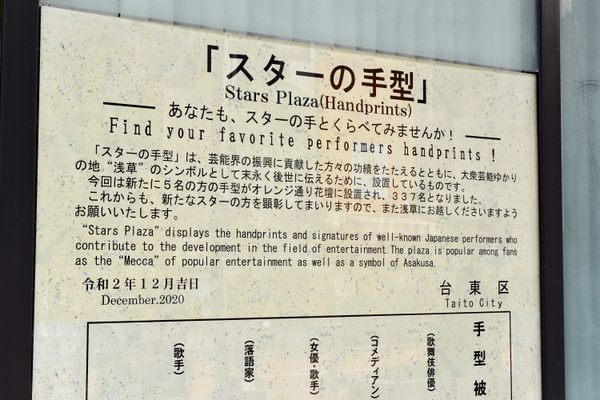 「スターの手型」
Stars Plaza(Handprints)
あなたも、スターの手とくらべてみませんか！
Find your favorite performers handprints !
「スターの手型」は、芸能界の振興に貢献した方々の功績をたたえるとともに、大衆芸能ゆかり
の地“浅草”のシンボルとして末永く後世に伝えるために、設置しているものです。
今回は新たに５名の方の手型がオレンジ通り花壇に設置され、３３７名となりました。
これからも、新たなスターの方を顕彰してまいりますので、また浅草にお越しくださいますよう
お願いいたします。
“Stars Plaza” displays the handprints and signatures of well-known Japanese performers who
contribute to the development in the field of entertainment.The plaza is popular among fans
as the “Mecca” of popular entertainment as well as a symbol of Asakusa.
令和２年１２月吉日
December.2020
台東区
Taito City
手型被
(歌舞伎俳優)
(コメディアン)
(女優・歌手)
(落語家)
(歌手)